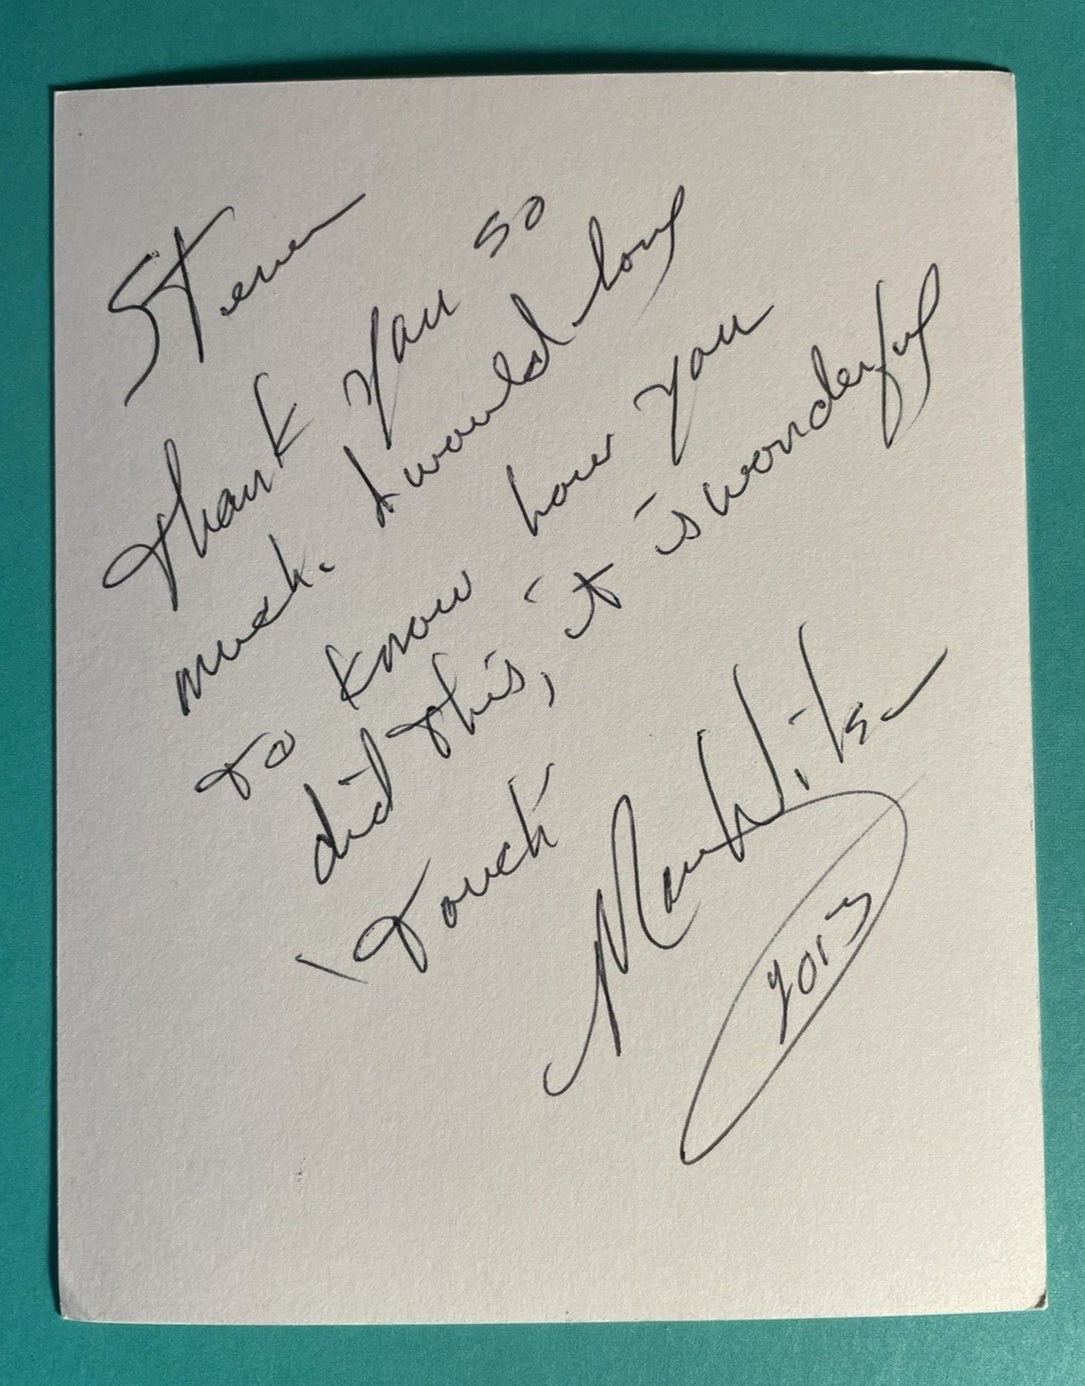 Steven
Thank you so
much. I would love
to know how you
did this, it is wonderful
Touch
Wilson
2013